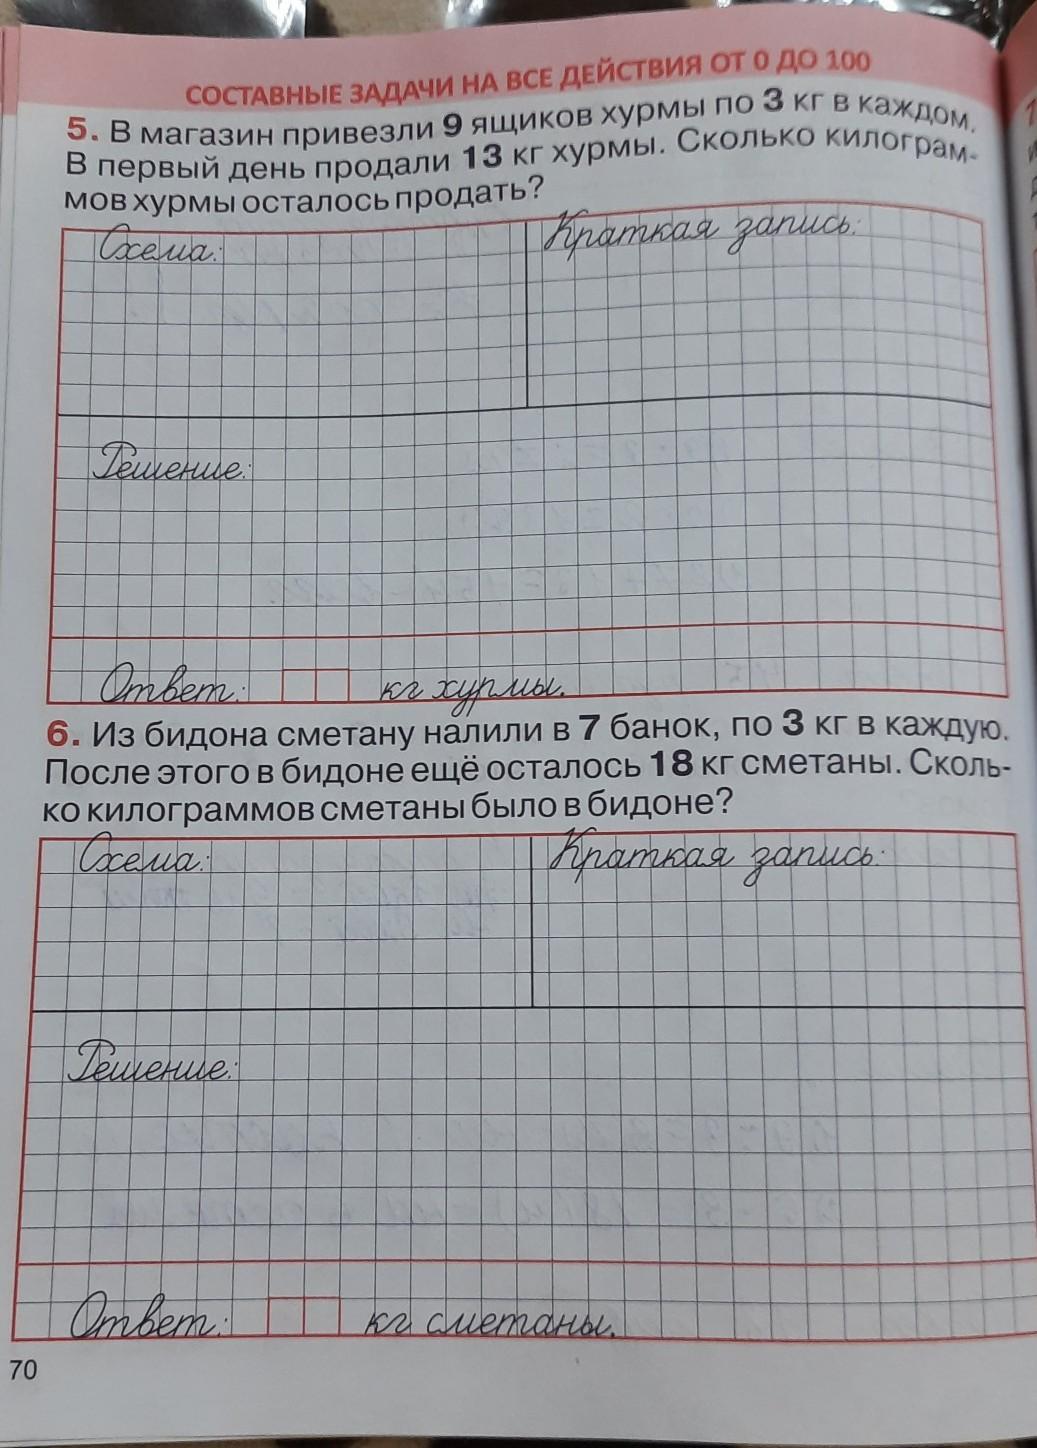 СОСТАВНЫЕ ЗАДАЧИ НА ВСЕ ДЕЙСТВИЯ ОТ 0 ДО 100
5. В магазин привезли 9 ящиков хурмы по 3 кг в каждом.
В первый день продали 13 кг хурмы. Сколько килограм-
мов хурмы осталось продать?
Схема:
Краткая запись:
Решение:
Ответ: кг хурмы.
6. Из бидона сметану налили в 7 банок, по 3 кг в каждую.
После этого в бидоне ещё осталось 18 кг сметаны. Сколь-
ко килограммов сметаны было в бидоне?
Схема:
Краткая запись:
Решение:
Ответ: кг сметаны.
70